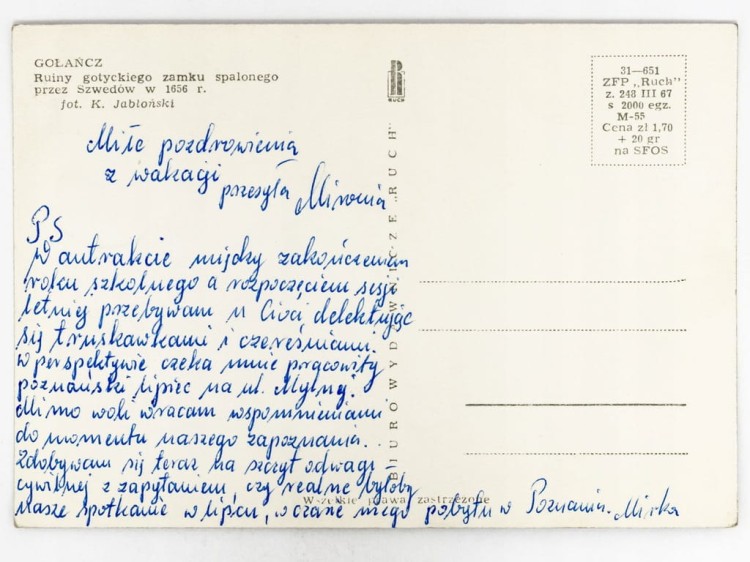 GOŁAŃCZ
Ruiny gotyckiego zamku spalonego
przez Szwedów w 1656 r.
fot. K. Jabłoński
RUCH
31—651
ZFP „Ruch"
z. 248 III 67
s 2000 egz.
M-55
Cena zł 1,70
+ 20 gr
na SFOS
BIURO WYDAWNICZE „RUCH"
Miłe pozdrowienia
z wakacji
przesyła Mirosia
PS
W antrakcie między zakończeniem
roku szkolnego a rozpoczęciem sesji
letniej przebywam u Cioci delektując
się truskawkami i czereśniami.
W perspektywie czeka mnie pracowity
poznański lipiec na ul. Mylnej.
Mimo woli wracam wspomnieniami
do momentu naszego zapoznania...
Zdobywam się teraz na szczyt odwagi
cywilnej z zapytaniem, czy realne byłoby
Wszelkie prawa zastrzeżone
nasze spotkanie w lipcu, w czasie mego pobytu w Poznaniu. Mirka